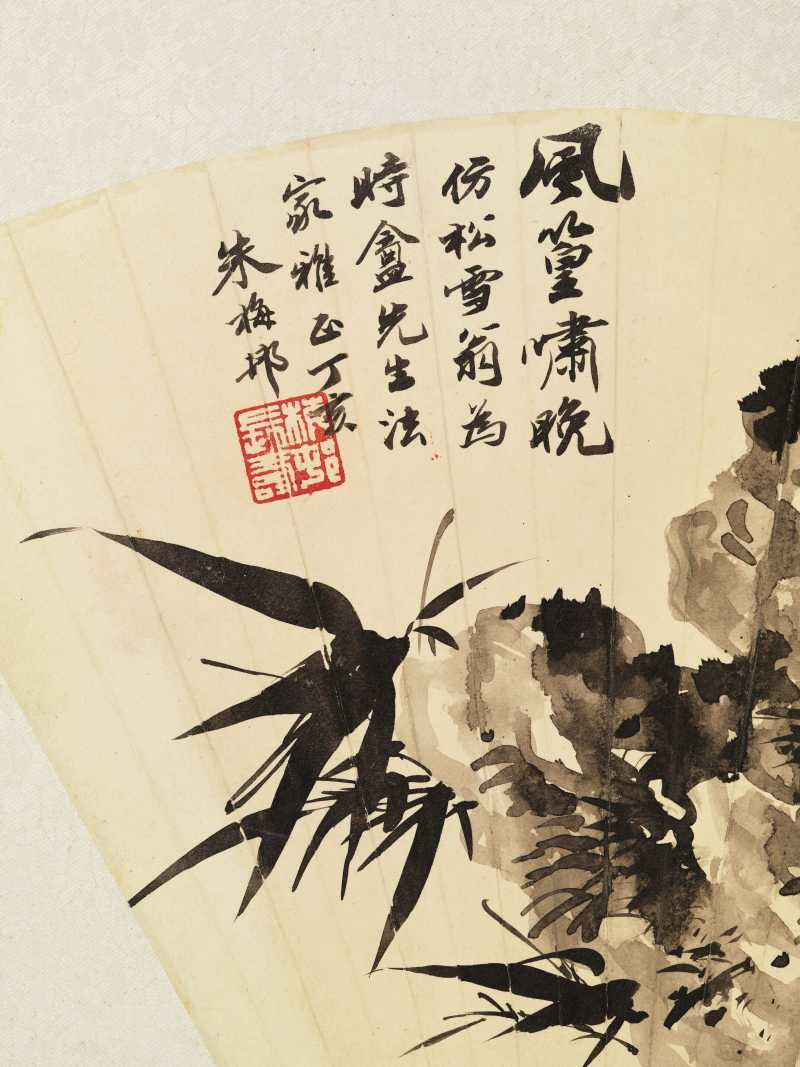 風篁嘯晚
仿松雪翁為
時盦先生法
家雅正丁亥
朱梅邨
梅邨
長壽